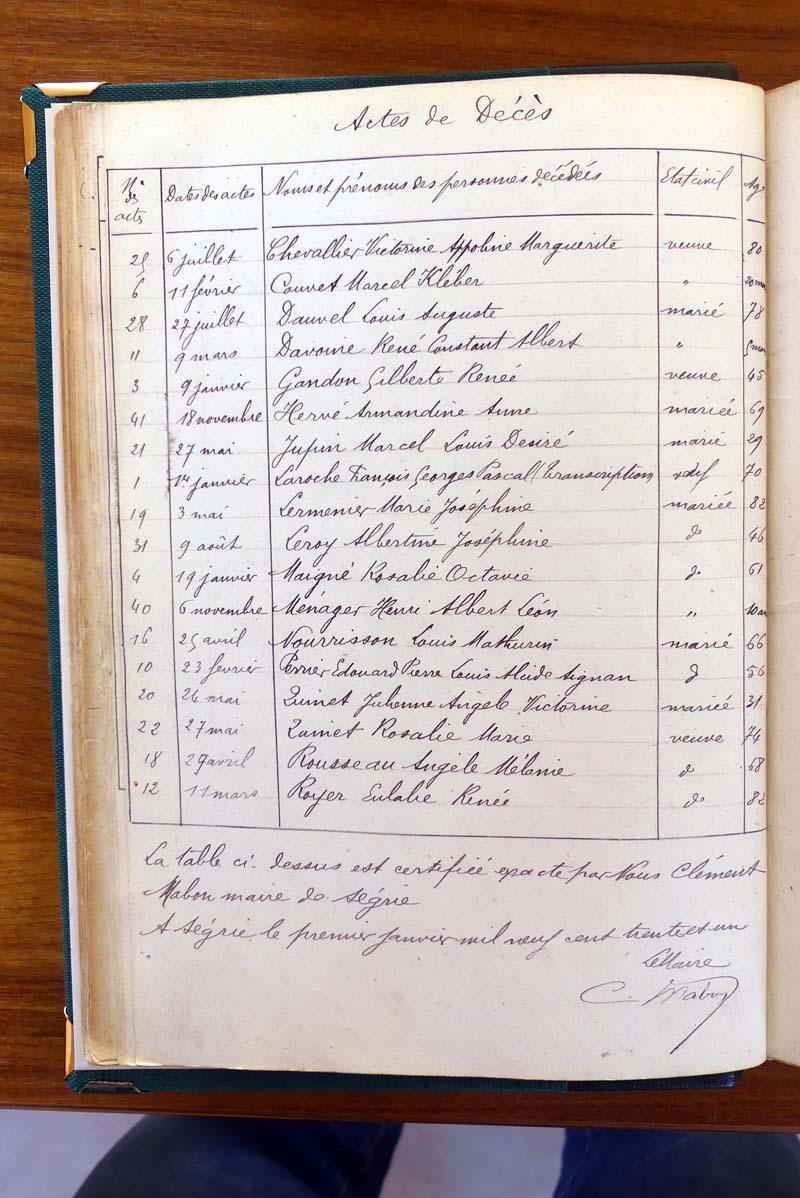 Actes de Décès
Nos des actes Dates des actes Noms et prénoms des personnes décédées Etat civil Age
25 6 juillet Chevallier Victorine Appoline Marguerite veuve 80
6 11 février Couvet Marcel Kléber " 20 mo
28 27 juillet Dauvel Louis Auguste marié 78
11 9 mars Davoine René Constant Albert " 5 moi
3 9 janvier Gandon Gilberte Renée veuve 45
41 18 novembre Hervé Armandine Anne mariée 69
21 27 mai Jupin Marcel Louis Desiré marié 29
1 1er janvier Laroche François Georges Pascal (transcription) veuf 70
19 3 mai Lermenier Marie Joséphine mariée 82
31 9 août Leroy Albertine Joséphine do 46
4 19 janvier Maigné Rosalie Octavie do 61
40 6 novembre Ménager Henri Albert Léon " 10 an
16 25 avril Nourrisson Louis Mathurin marié 66
10 23 février Perrier Edouard Pierre Louis Alcide Aignan do 56
20 26 mai Quinet Julienne Angèle Victorine mariée 31
22 27 mai Quinet Rosalie Marie veuve 74
18 29 avril Rousseau Angèle Mélanie do 68
12 11 mars Royer Eulalie Renée do 82
La table ci-dessus est certifiée exacte par Nous Clément
Mabon maire de Ségrie
A Ségrie le premier janvier mil neuf cent trente et un
Le Maire
C. Mabon